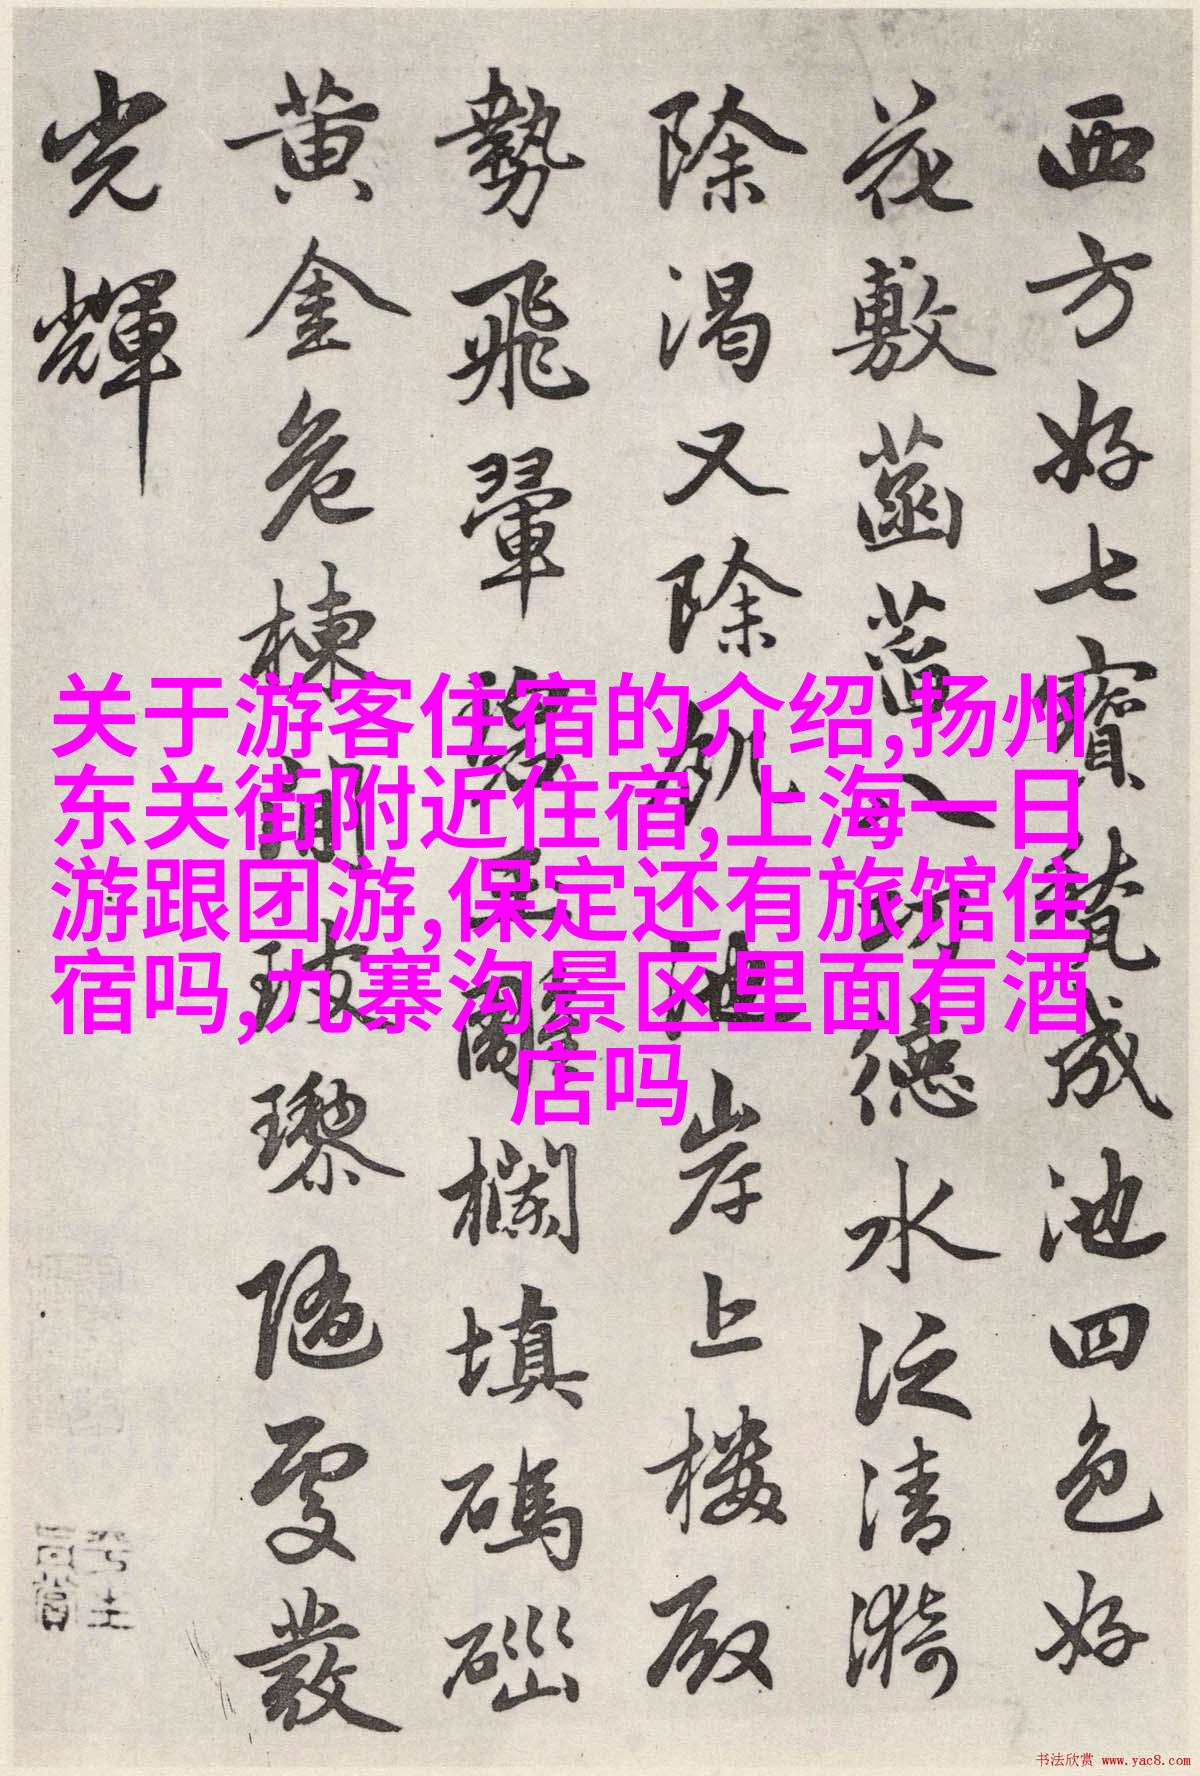 西方好七寶甃成池四色好
花敷菡萏八功德水泛清漪
除渴又除飢池岸上樓殿
勢飛翬碧玉雕欄填碼碯
黄金危棟間玻瓈隨處發
光輝
关于游客住宿的介绍,扬州
东关街附近住宿,上海一日
游跟团游,保定还有旅馆住
宿吗,九寨沟景区里面有酒
店吗
书法欣赏 www.yac8.com